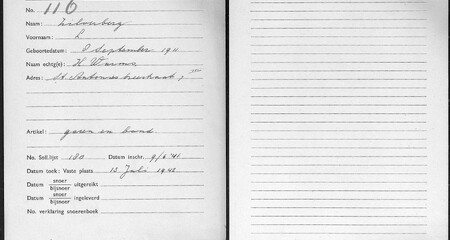 No. 116
Naam: Zilverberg
Voornaam: L
Geboortedatum: 9 September 1911
Naam echtg(e): H
Adres: St. Antonies breestraat 7
Artikel: garen en band
No. Soll.lijst 180 Datum inschr. 9/6 '41
Datum toek: Vaste plaats 13 Juli 1942
Datum snoer bijsnoer uitgereikt
Datum snoer bijsnoer ingeleverd
No. verklaring snoerenboek